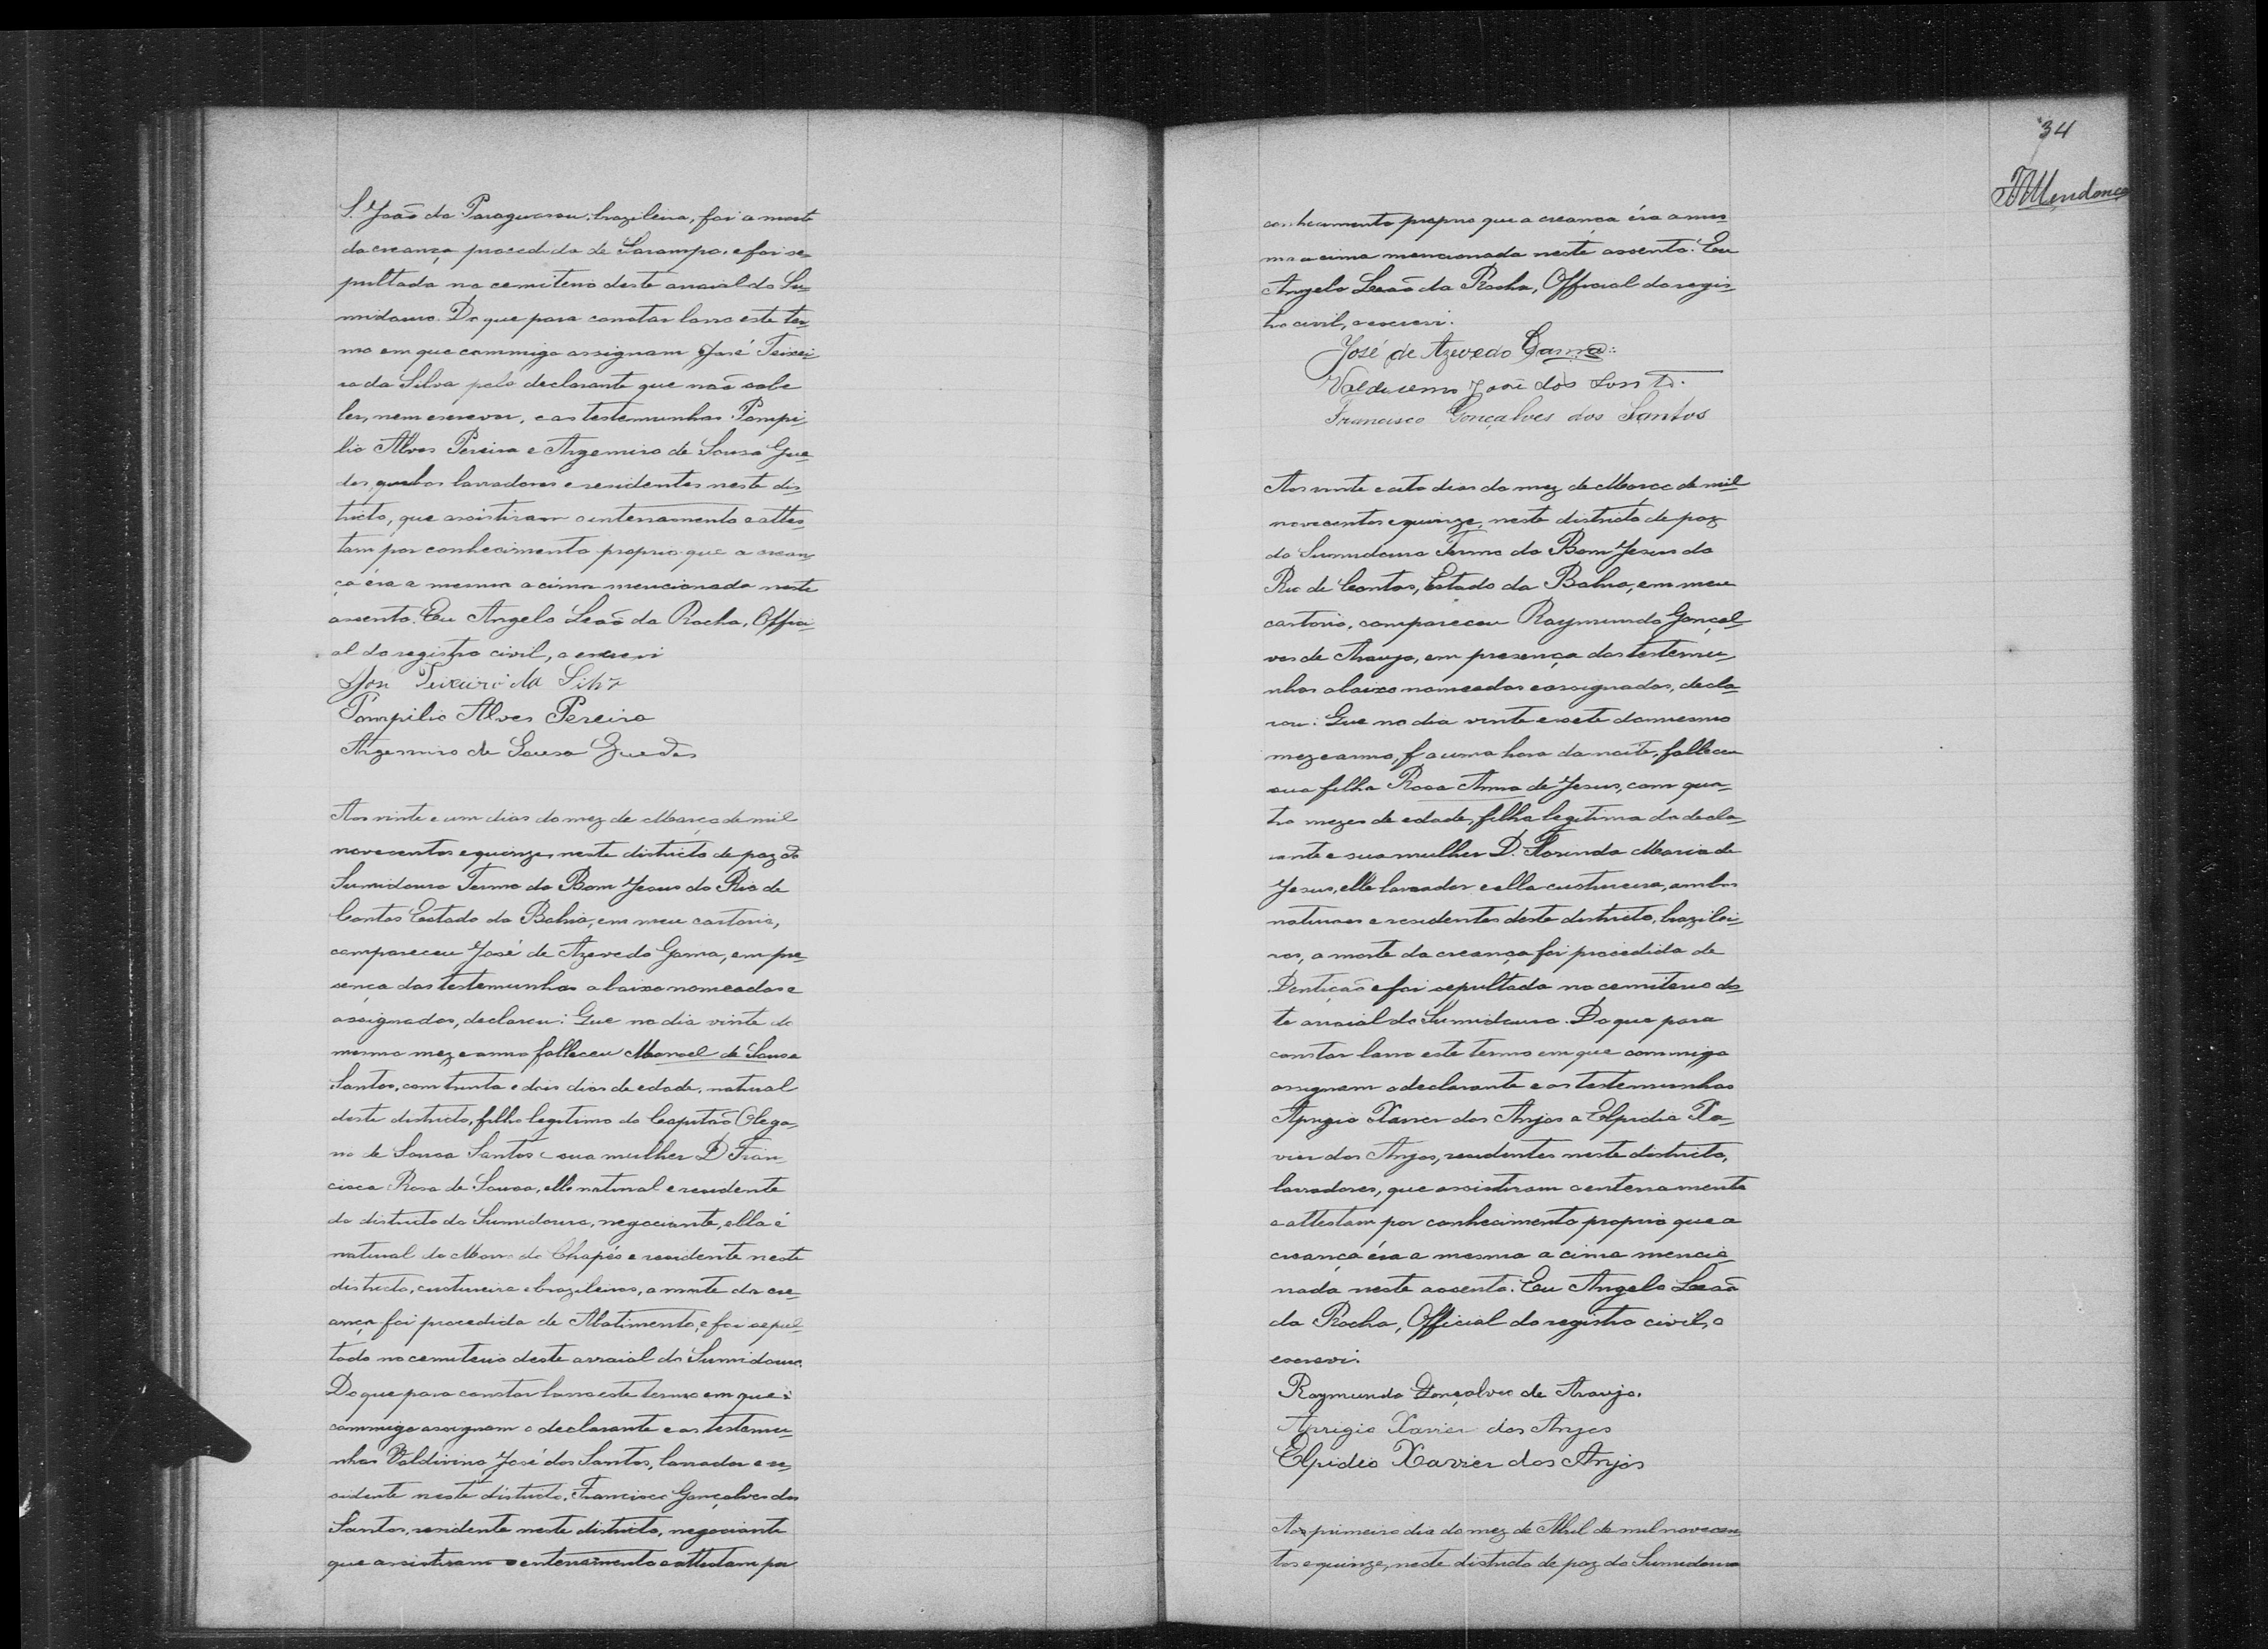 S. João do Paraguassu, brazileira, foi a morte
da creança procedida de Sarampo, e foi se-
pultada no cemiterio deste arraial do Su-
midouro. Do que para constar lavro este ter-
mo em que commigo assignam José Teixei-
ra da Silva pelo declarante que não sabe
ler, nem escrever, e as testemunhas Pompi-
lio Alves Pereira e Argemiro de Sousa Gue-
des, lavradores e residentes neste dis-
tricto, que assistiram o enterramento e attes-
tam por conhecimento proprio que a crean-
ça éra a mesma acima mencionada neste
assento. Eu Angelo Leão da Rocha, Offici-
al do registro civil, o escrevi
José Teixeira da Silva
Pompilio Alves Pereira
Argemiro de Sousa Guedes
Aos vinte e um dias do mez de Março de mil
novecentos e quinze, neste districto de paz do
Sumidouro Termo do Bom Jesus do Rio de
Contas Estado da Bahia, em meu cartorio,
compareceu José de Azevedo Gama, em pre-
sença das testemunhas abaixo nomeadas e
assignadas, declarou: Que no dia vinte do
mesmo mez e anno falleceu Manoel de Sousa
Santos, com trinta e dois dias de edade, natural
deste districto, filho legitimo do Capitão Olega-
rio de Sousa Santos e sua mulher D. Fran-
cisca Rosa de Sousa, elle natural e residente
do districto do Sumidouro, negociante, ella é
natural do Morro do Chapéo e residente neste
districto, custureira e brazileiros, a morte da cre-
ança foi procedida de Abatimento, e foi sepul-
tado no cemiterio deste arraial do Sumidouro.
Do que para constar lavro este termo em que
commigo assignam o declarante e as testemu-
nhas Valdivino José dos Santos, lavrador e re-
sidente neste districto, Francisco Gonçalves dos
Santos, residente neste districto, negociante
que assistiram o enterramento e attestam por
34
Mendonça
conhecimento proprio que a creança éra a mes-
ma acima mencionada neste assento. Eu
Angelo Leão da Rocha, Official do regis-
tro civil, o escrevi.
José de Azevedo Gama
José dos
Francisco Gonçalves dos Santos
Aos vinte e oito dias do mez de Março de mil
novecentos e quinze, neste districto de paz
do Sumidouro Termo do Bom Jesus do
Rio de Contas, Estado da Bahia, em meu
cartorio, compareceu Raymundo Gonçal-
ves de Araujo, em presença das testemu-
nhas abaixo nomeadas e assignadas, decla-
rou: Que no dia vinte e sete do mesmo
mez e anno, a uma hora da noite, falleceu
sua filha Rosa Anna de Jesus, com qua-
tro mezes de edade, filha legitima do decla-
rante e sua mulher D. Florinda Maria de
Jesus, elle lavrador e ella custureira, ambos
naturaes e residentes deste districto, brazilei-
ros, a morte da creança foi procedida de
Dentição e foi sepultada no cemiterio des-
te arraial do Sumidouro. Do que para
constar lavro este termo em que commigo
assignam o declarante e as testemunhas
Aprigio Xavier dos Anjos e Elpidio Xa-
vier dos Anjos, residentes neste districto,
lavradores, que assistiram o enterramento
e attestam por conhecimento proprio que a
creança éra a mesma acima mencio-
nada neste assento. Eu Angelo Leão
da Rocha, Official do registro civil, o
escrevi.
Raymundo Gonçalves de Araujo.
Aprigio Xavier dos Anjos
Elpidio Xavier dos Anjos
Ao primeiro dia do mez de Abril de mil novecen-
tos e quinze, neste districto de paz do Sumidouro